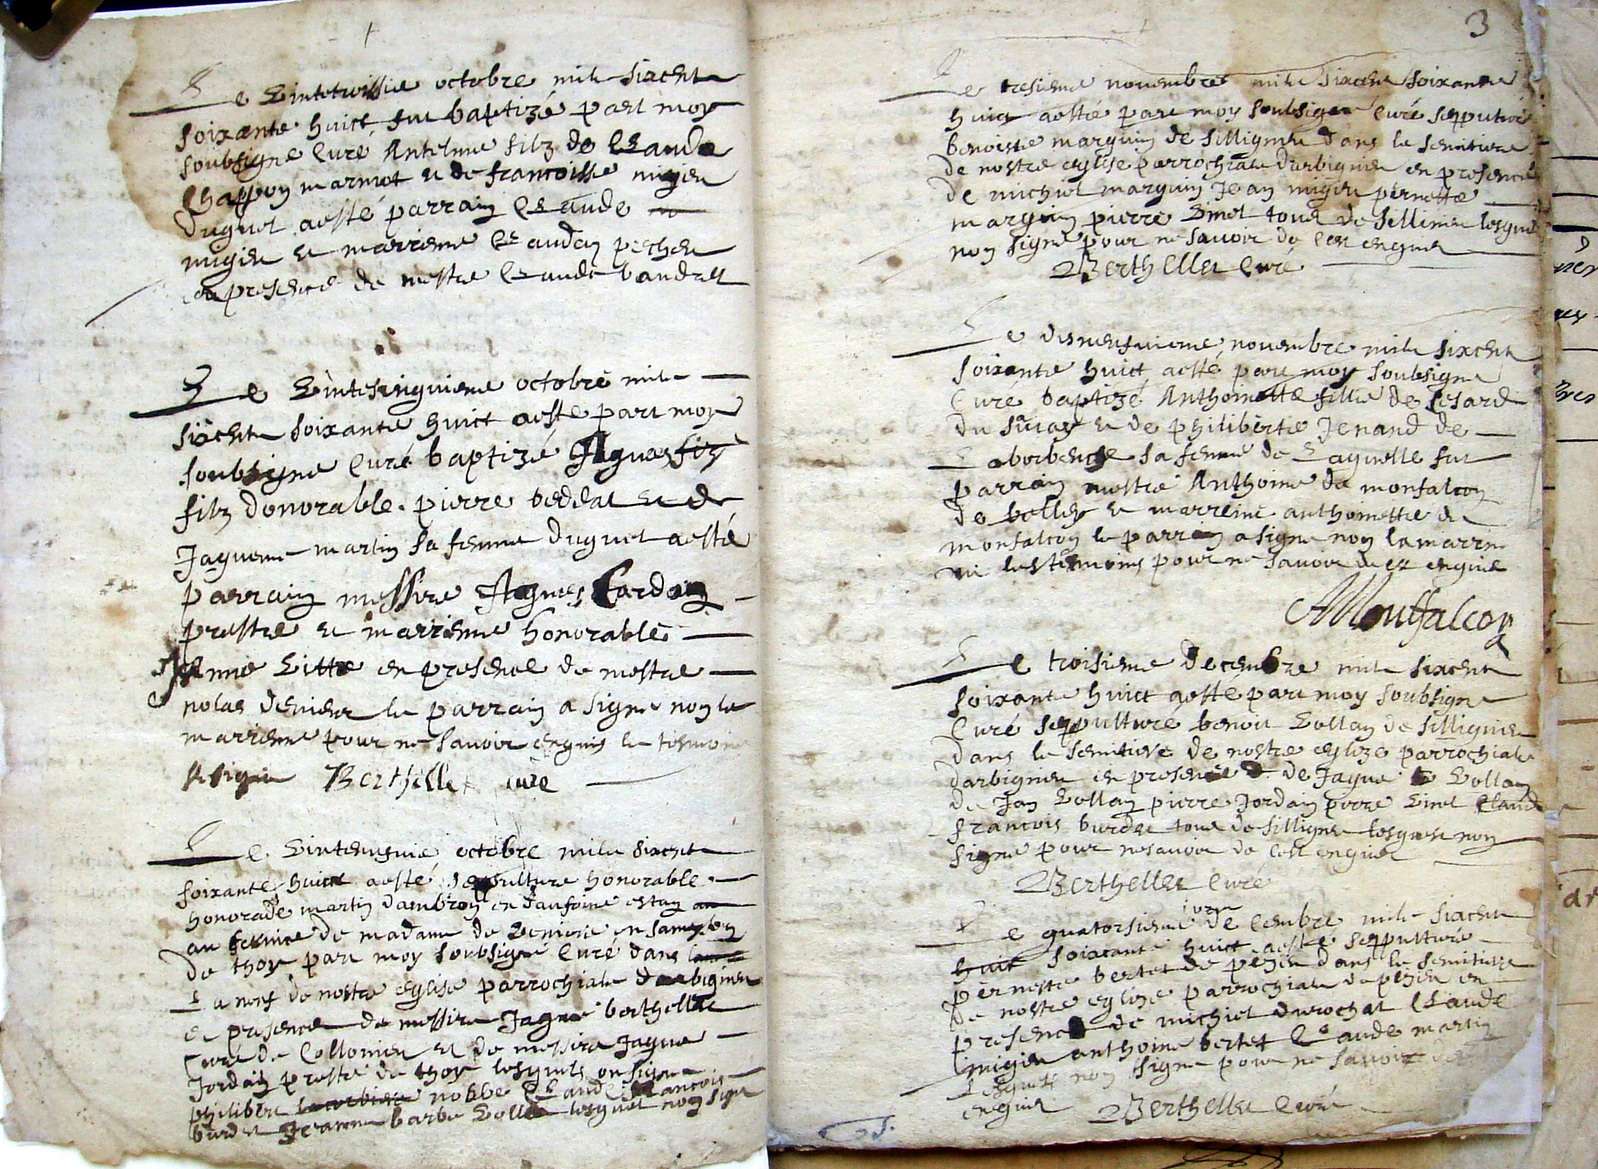 Le vintetroissie octobre mile sixcent
soixante huict fut baptizé part moy
soubsigne curé Antelme filz de Claude
Chappon marmot et de francoisse migieu
duquel aesté parrain Claude
migieu et marrieme Claudan pecheu
en presence de mestre Claude
Le vintesinquieme octobre mile
sixcent soixante huict aeste part moy
soubsigne curé baptizé Aguaes fiz
filz donorable pierre beddat et de
Jaqueme martin sa femme duquel aesté
parrain messire Agnes Cardain
prestre et marrieme honorable
Anne Litte en presence de mestre
nolas denieur le parrain a signe non la
marrieme pour ne savoir enquis le temoin
Berthellet curé
Le octobre mile sixcent
soixante huict aesté sepulture honorable
honorade martin dambron en daufoine estan
au service de madame de
de thoy part moy soubsigné curé dans
La nerf de nostre eglise parrochiale darbigneu
en presence de messire Jaque berthellet
curé de Collomieu et de messire Jaque
Jordain prestre de thoy lesquels on signe
philibert noble Claude francois
burdet Jeanne barbe lesquel non signe
3
Le tresieme novembre mile sixcent soixante
huict aesté part moy soubsigne curé sepulturé
benoiste marguin de sillignieu dans le semitiere
de nostre eglise parrochiale darbignieu en presence
de michiel marguin Jean migieu pernette
marguin pierre binet tous de sillinieu lesquels
non signe pour ne savoir de ce enquis
Berthellet Curé
Le disneufvieme novembre mile sixcent
soixante huict aesté part moy soubsigne
Curé baptizé Anthomette fillie de Cesard
du et de philiberte Jenand de
Laborbenche sa femme de Laquelle fut
parrain mestre Anthoine de monfalcon
de belley et marreine anthomette de
monfalcon le parrain a signe non la marrine
ni les temoins pour ne savoir de ce enquis
AMonffalcon
Le troisieme decembre mile sixcent
soixante huict aesté part moy soubsigne
Curé sepulture benoit Bollan de sillignieu
dans le semitiere de nostre eglize parrochiale
darbignieu en presence de Jaque Bollan
de Jan Bollan pierre Jordain pierre binet Claude
francois burdet tous de sillignieu lesquels non
signe pour nesavoir de ce enquis
Berthellet Curé
Le quatorsieme jour de Cembre mile sixcent
huit soixante huict aesté sepulturé
pernette bertet de pezieu dans le semitiere
de nostre eglize parrochiale de pezieu en
presence de michiel durochat Claude
migieu anthoine bertet Claude martin
Lesquels non signe pour ne savoir de
enquis Berthellet Curé